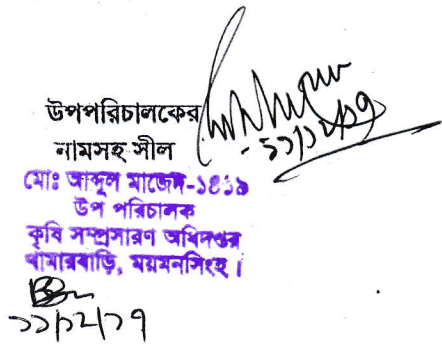 উপপরিচালকের
নামসহ সীল
-১১/১২/১৭
মোঃ আব্দুল মাজেদ-১৪১৯
উপ পরিচালক
কৃষি সম্প্রসারণ অধিদপ্তর
খামারবাড়ি, ময়মনসিংহ।
১১/১২/১৭